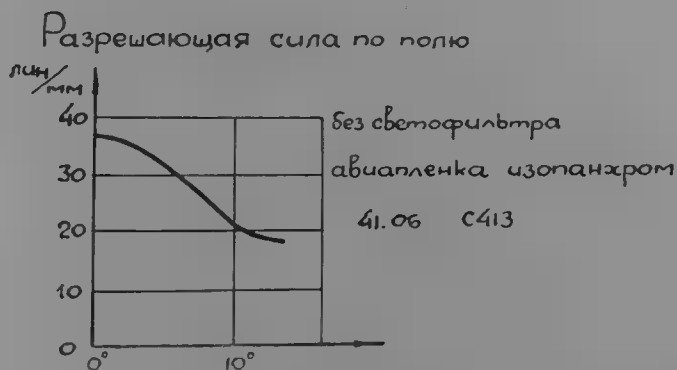 Разрешающая сила по полю
лин/мм
40
30
20
10
0
0° 10°
без светофильтра
авиапленка изопанхром
41.06 С413